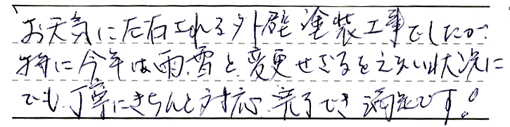 お天気に左右される外壁塗装工事でしたが、
特に今年は雨、雪と変更せざるをえない状況に
でも丁寧にきちんと対応 完了でき 満足です!